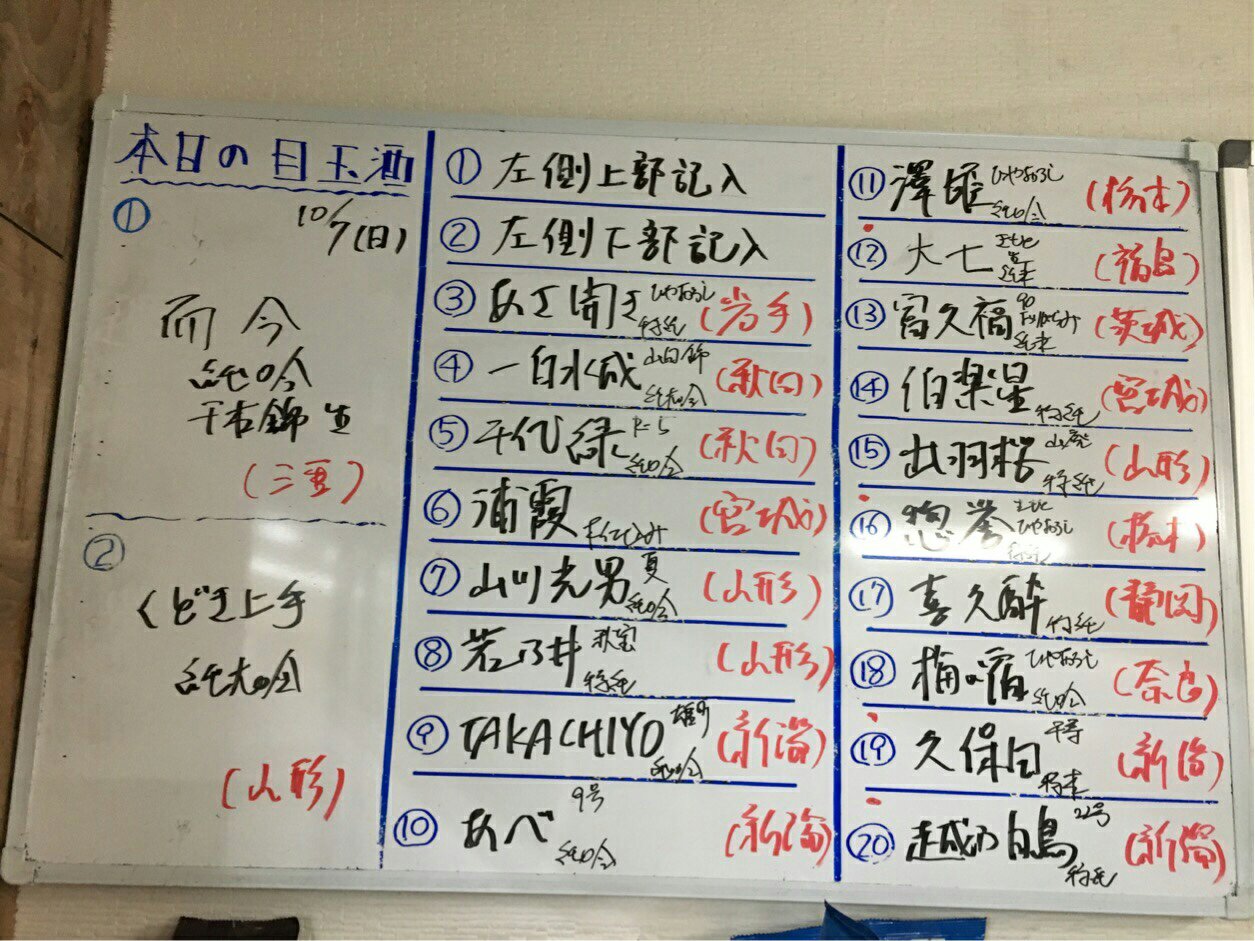 本日の目玉酒
①
10/7(日)
而今
純吟
千本錦 生
(三重)
②
くどき上手
純大吟
(山形)
① 左側上部記入
② 左側下部記入
③ あさ開き ひやおろし 特純 (岩手)
④ 一白水成 山田錦 純大吟 (秋田)
⑤ 千代緑 R-5 純吟 (秋田)
⑥ 浦霞 (宮城)
⑦ 山川光男 夏 純吟 (山形)
⑧ 若乃井 秋宝 特純 (山形)
⑨ TAKACHIYO 雄町 純吟 (新潟)
⑩ あべ 9号 純吟 (新潟)
⑪ 澤姫 ひやおろし 純吟 (栃木)
⑫ 大七 生もと 純米 (福島)
⑬ 富久福 90 純米 (茨城)
⑭ 伯楽星 特純 (宮城)
⑮ 出羽桜 特純 (山形)
⑯ 惣誉 生もと ひやおろし 特純 (栃木)
⑰ 喜久酔 特純 (静岡)
⑱ 梅の宿 ひやおろし 純吟 (奈良)
⑲ 久保田 千寿 特本 (新潟)
⑳ 越乃白鳥 22号 特純 (新潟)